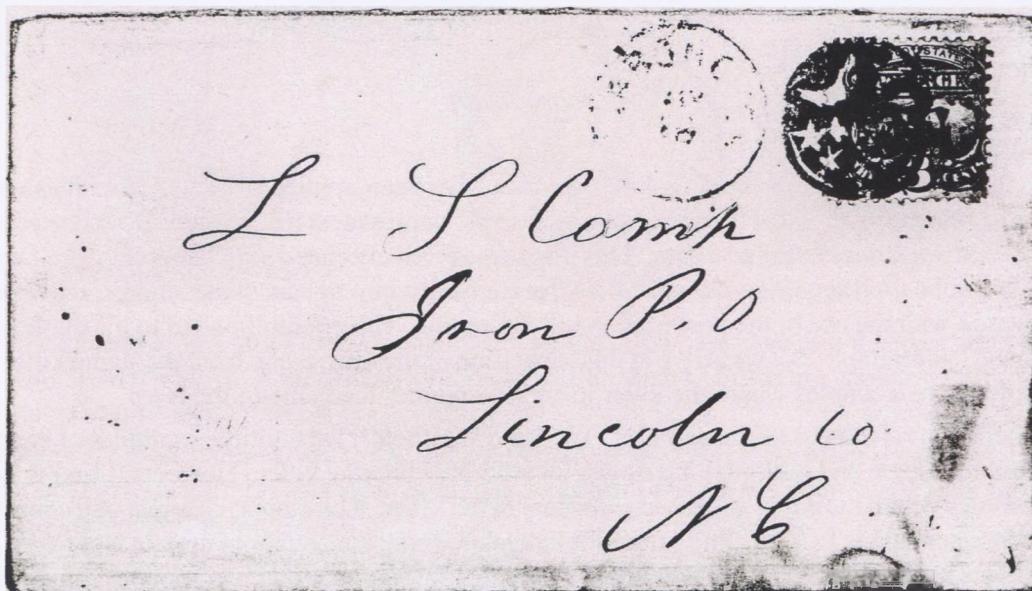 L S Camp
Iron P.O
Lincoln Co.
N C